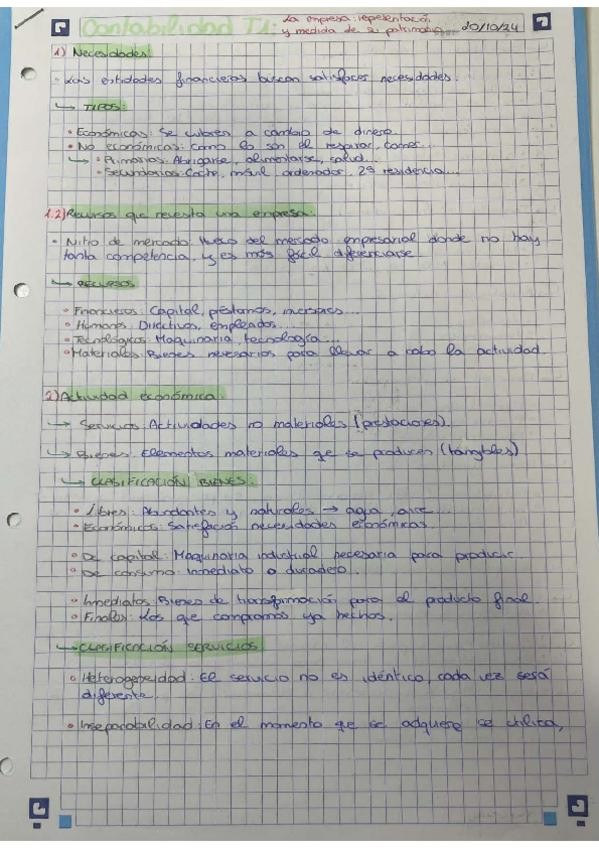 Contabilidad T1: La empresa: representación
y medida de su patrimonio 20/10/24
1) Necesidades:
- Las entidades financieras buscan satisfacer necesidades.
↳ TIPOS:
• Económicas: Se cubren a cambio de dinero
• No económicas: Como lo son el respirar, comer...
↳ • Primarias: Abrigarse, alimentarse, salud...
• Secundarias: Coche, móvil, ordenador, 2ª residencia...
1.2) Recursos que necesita una empresa:
- Nicho de mercado: Hueco del mercado empresarial donde no hay
tanta competencia, y es más fácil diferenciarse
↳ RECURSOS
• Financieros: Capital, préstamos, inversores...
• Humanos: Directivos, empleados...
• Tecnológicos: Maquinaria, tecnología...
• Materiales: Bienes necesarios para llevar a cabo la actividad.
2) Actividad económica:
→ Servicios: Actividades no materiales (prestaciones).
→ Bienes: Elementos materiales que se producen (tangibles)
↳ CLASIFICACIÓN BIENES:
• Libres: Abundantes y naturales → agua, aire...
• Económicos: Satisfación necesidades económicas
• De capital: Maquinaria industrial necesaria para producir.
• De consumo: Inmediato o duradero.
• Inmediatos: Bienes de transformación para el producto final.
• Finales: Los que compramos ya hechos.
↳ CLASIFICACIÓN SERVICIOS:
• Heterogeneidad: El servicio no es idéntico, cada vez será
diferente.
• Inseparabilidad: En el momento que se adquiere se utiliza,